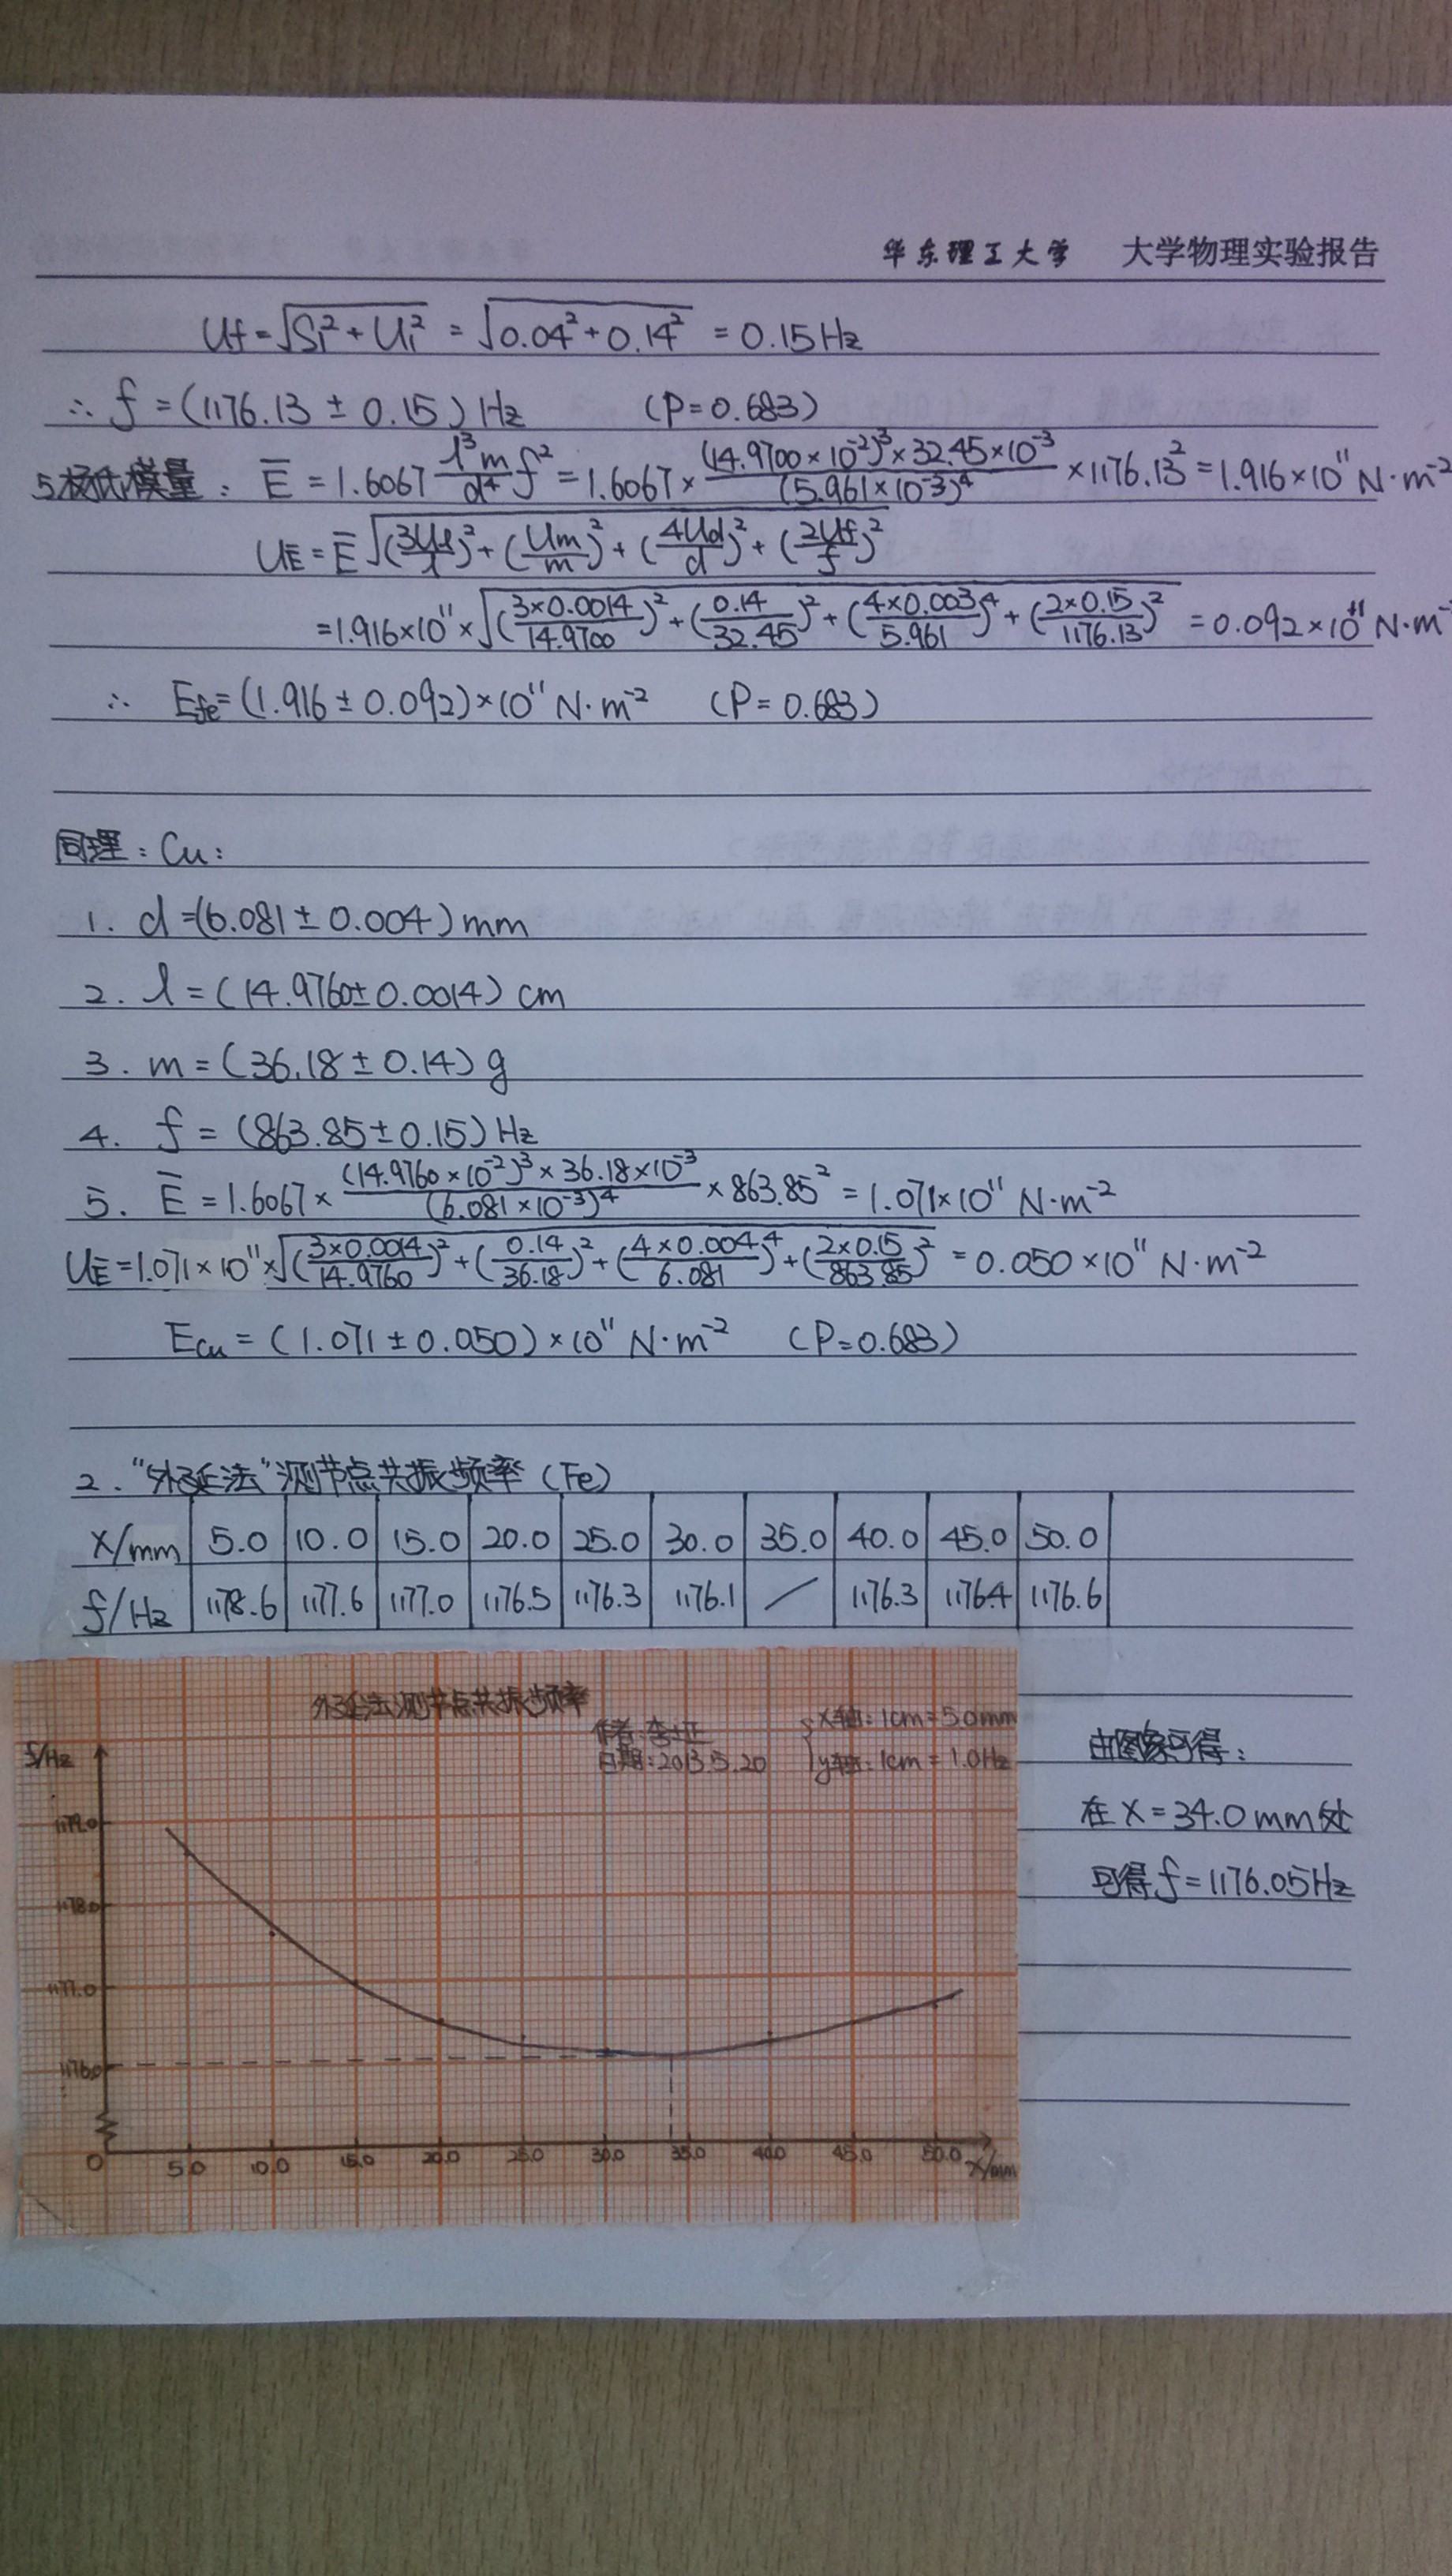 华东理工大学 大学物理实验报告
Uf=√(S₁²+U₁²) = √(0.04²+0.14²) = 0.15Hz
∴ f=(1176.13±0.15)Hz (P=0.683)
5.杨氏模量: E̅ = 1.6067 l³m/d⁴ f² = 1.6067× (14.9700×10⁻²)³×32.45×10⁻³/(5.961×10⁻³)⁴ ×1176.13² = 1.916×10¹¹ N·m⁻²
UE̅ = E̅ √((3Ul/l)²+(Um/m)²+(4Ud/d)²+(2Uf/f)²)
=1.916×10¹¹×√((3×0.0014/14.9700)²+(0.14/32.45)²+(4×0.003/5.961)⁴+(2×0.15/1176.13)²) = 0.092×10¹¹ N·m⁻
∴ Efe=(1.916±0.092)×10¹¹ N·m⁻² (P=0.683)
同理: Cu:
1. d=(6.081±0.004)mm
2. l=(14.9760±0.0014) cm
3. m=(36.18±0.14) g
4. f=(863.85±0.15)Hz
5. E̅ = 1.6067× (14.9760×10⁻²)³×36.18×10⁻³/(6.081×10⁻³)⁴ ×863.85² = 1.071×10¹¹ N·m⁻²
UE̅=1.071×10¹¹×√((3×0.0014/14.9760)²+(0.14/36.18)²+(4×0.004/6.081)⁴+(2×0.15/863.85)²) = 0.050×10¹¹ N·m⁻²
Ecu = (1.071±0.050)×10¹¹ N·m⁻² (P=0.683)
2. "外延法"测节点共振频率(Fe)
X/mm 5.0 10.0 15.0 20.0 25.0 30.0 35.0 40.0 45.0 50.0
f/Hz 1178.6 1177.6 1177.0 1176.5 1176.3 1176.1 / 1176.3 1176.4 1176.6
外延法测节点共振频率
作者:
日期:2013.5.20
x轴: 1cm=5.0mm
y轴: 1cm=1.0Hz
f/Hz
1179.0
1178.0
1177.0
1176.0
0 5.0 10.0 15.0 20.0 25.0 30.0 35.0 40.0 45.0 50.0 X/mm
由图象可得:
在X=34.0mm处
可得f=1176.05Hz